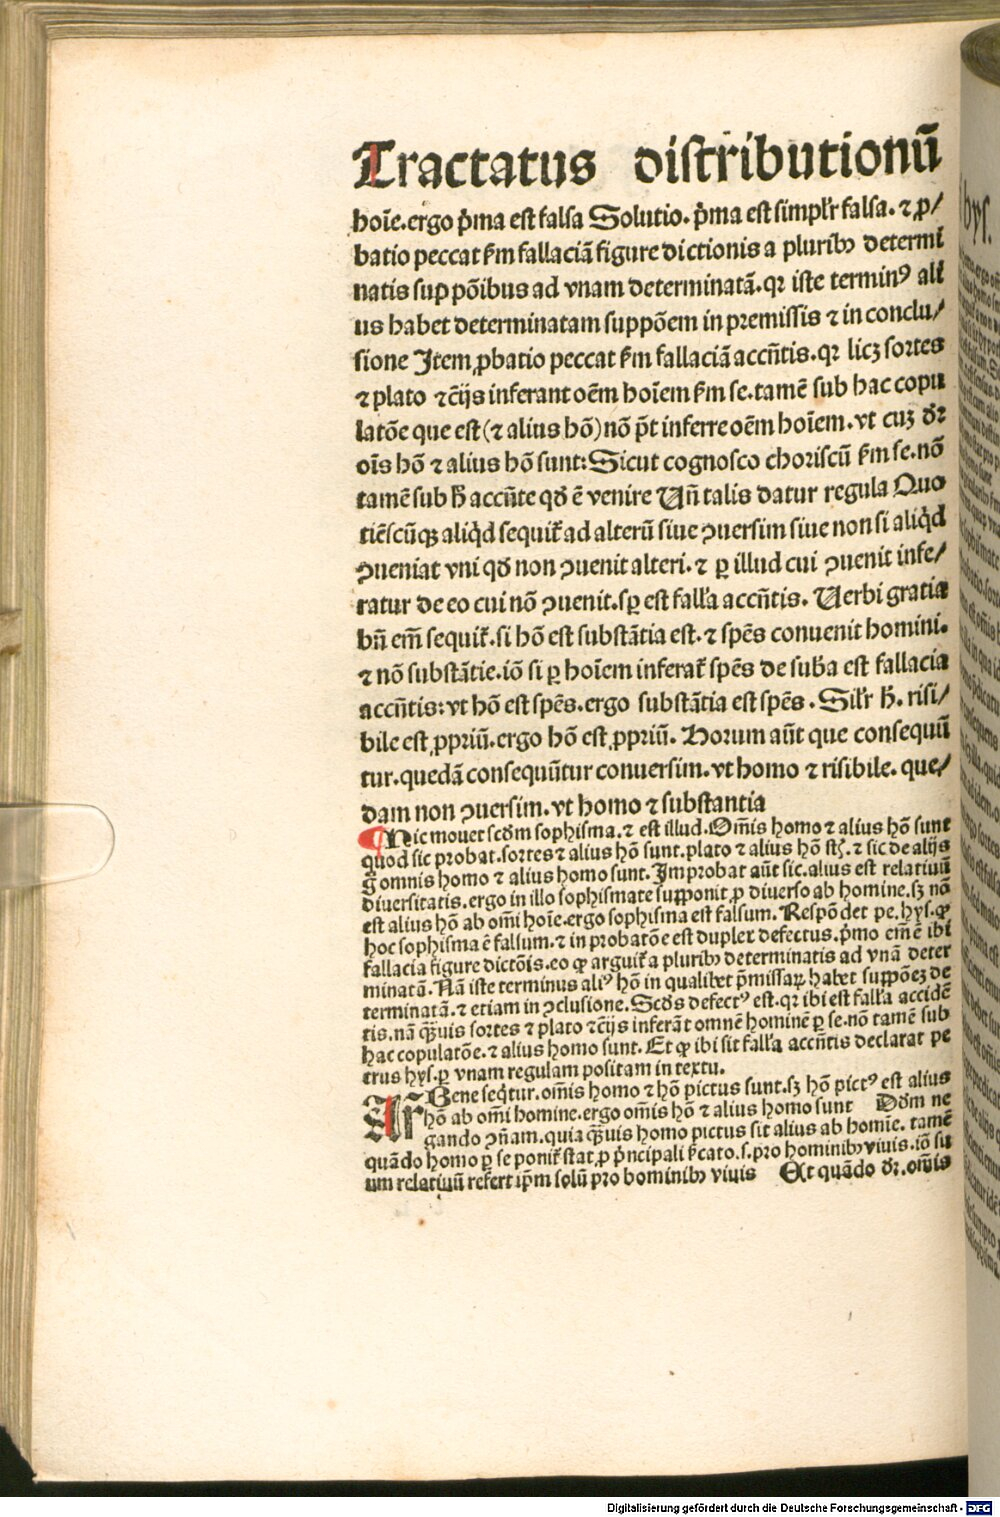 Tractatus distributionū
hoīe.ergo p̄ma est falsa Solutio. p̄ma est simpl'r falsa. ⁊ ꝓ/
batio peccat ẜm fallaciā figure dictionis a pluribꝰ determi
natis suppōibus ad vnam determinatā.qꝛ iste terminꝰ ali
us habet determinatam suppōem in premissis ⁊ in conclu/
sione Item ꝓbatio peccat ẜm fallaciā accñtis.qꝛ licꝫ sortes
⁊ plato ⁊c̄ijs inferant oēm hoīem ẜm se.tamē sub hac copu
latōe que est (⁊ alius hō) nō p̄t inferre oēm hoīem.vt cuꝫ dꝛ̄
oīs hō ⁊ alius hō sunt: Sicut cognosco choriscū ẜm se.nō
tamē sub h̄ accñte qđ ē venire Vñ talis datur regula Quo
tiēscūqꝫ aliqd̄ sequit̄ ad alterū siue ꝯuersim siue non si aliqd̄
ꝯueniat vni qđ non ꝯuenit alteri.⁊ ꝑ illud cui ꝯuenit infe/
ratur de eo cui nō ꝯuenit.sꝑ est fall'a accñtis. Verbi gratia
bñ em̄ sequit̄.si hō est substātia est.⁊ spēs convenit homini.
⁊ nō substātie.iō si ꝑ hoīem inferat̄ spēs de sub'a est fallacia
accñtis:vt hō est spēs.ergo substātia est spēs. Sil'r h̄. risi/
bile est ꝓpriū.ergo hō est ꝓpriū. Horum aūt que consequū
tur.quedā consequūtur conuersim.vt homo ⁊ risibile. que/
dam non ꝯuersim.vt homo ⁊ substantia
Hic mouet scđm sophisma.⁊ est illud.Om̄is homo ⁊ alius hō sunt
quod sic probat.sortes ⁊ alius hō sunt.plato ⁊ alius hō st̄. ⁊ sic de alijs
g̊ omnis homo ⁊ alius homo sunt. Improbat aūt sic.alius est relatiuū
diuersitatis.ergo in illo sophismate supponit ꝓ diuerso ab homine.sꝫ nō
est alius hō ab om̄i hoīe.ergo sophisma est falsum. Respōdet pe.hys.ꝙ
hoc sophisma ē falsum.⁊ in probatōe est duplex defectus. p̄mo em̄ ē ibi
fallacia figure dictōis.eo ꝙ arguit̄ a pluribꝰ determinatis ad vnā deter
minatā. Nā iste terminus aliꝰ hō in qualibet p̄missaꝝ habet suppōeꝫ de
terminatā.⁊ etiam in ꝯclusione. Scđs defectꝰ est.qꝛ ibi est fall'a accidē
tis.nā q̄ꝫuis sortes ⁊ plato ⁊c̄ijs inferāt omnē hominē ꝑ se.nō tamē sub
hac copulatōe.⁊ alius homo sunt. Et ꝙ ibi sit fall'a accñtis declarat pe
trus hys.ꝑ vnam regulam positam in textu.
Ar̄ Bene seq̄tur.om̄is homo ⁊ hō pictus sunt.sꝫ hō pictꝰ est alius
hō ab om̄i homine.ergo om̄is hō ⁊ alius homo sunt Dđm ne
gando ꝯñam.quia q̄ꝫuis homo pictus sit alius ab homīe. tamē
quādo homo ꝑ se ponit̄ stat ꝓ p̄ncipali ẜcato.s.pro hominibꝰ viuis.iō su
um relatiuū refert ip̄m solū pro hominibꝰ viuis Et quādo dꝛ̄.om̄is
Digitalisierung gefördert durch die Deutsche Forschungsgemeinschaft - DFG